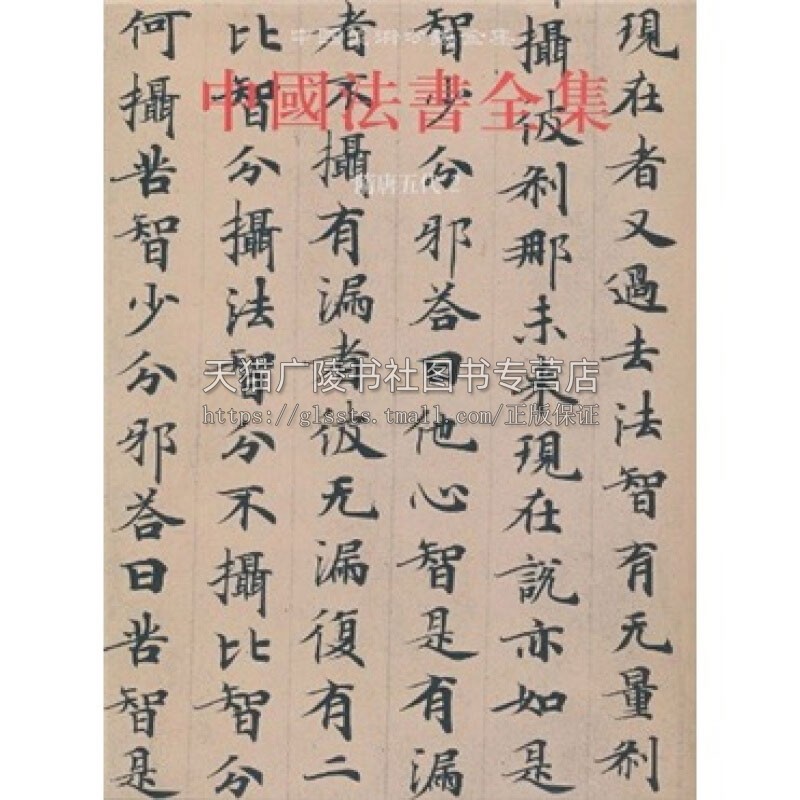 中國美術分類全集
中國法書全集
隋唐五代 2
現在者又過去法智有无量刹
攝彼刹那未来現在說亦如是
智少分邪荅曰他心智是有漏
者不攝有漏者彼无漏復有二
比智分攝法智分不攝比智分
何攝苦智少分邪荅曰苦智是
天猫广陵书社图书专营店
https://glssts.tmall.com/正版保证